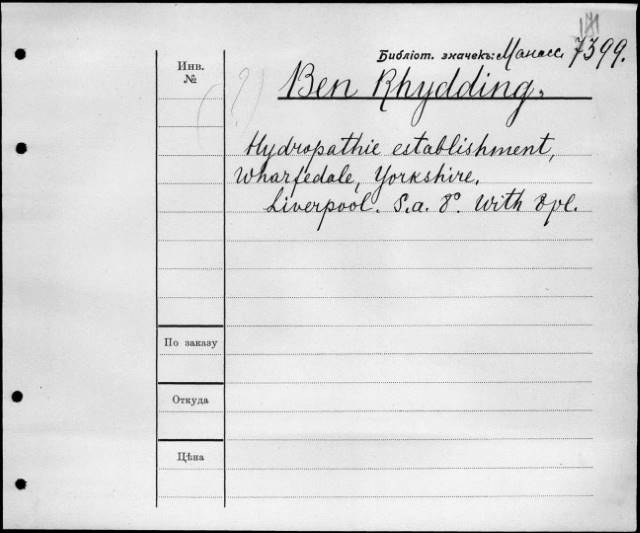 Библіот. значекъ: Манасс. 7399.
Инв.
№
(?)
Ben Rhydding,
Hydropathic establishment,
Wharfedale, Yorkshire.
Liverpool. S.a. 8°. With 8 pl.
По заказу
Откуда
Цѣна